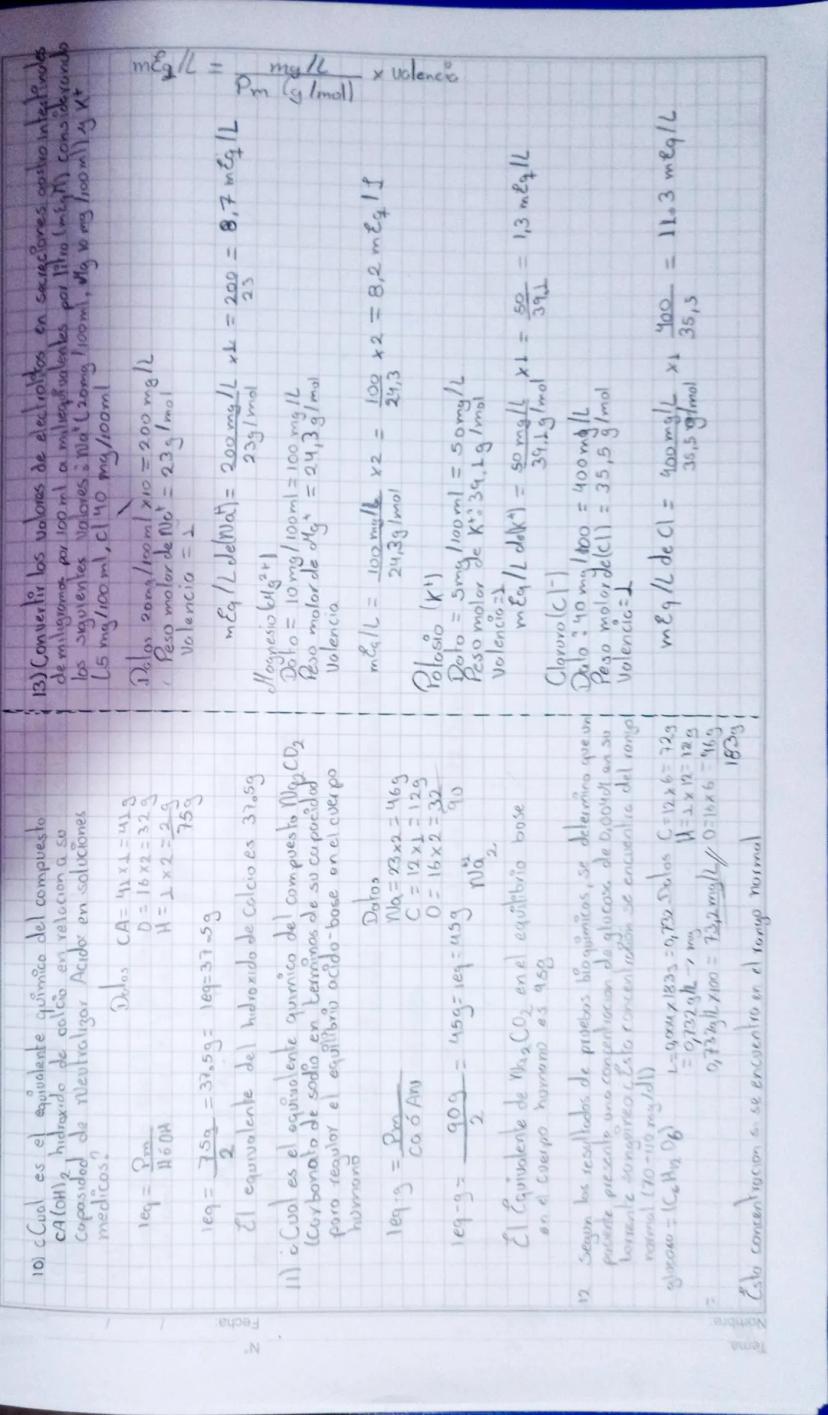 10) ¿Cual es el equivalente químico del compuesto
CA(OH)2 hidroxido de calcio en relacion a su
capasidad de Neutralizar Acidor en soluciones
médicos?
Datos CA = 41 x 1 = 41g
O = 16 x 2 = 32g
H = 1 x 2 = 2g
75g
1eq = Pm / H ó OH
1eq = 75g / 2 = 37.5g = 1eq = 37.5g
El equivalente del hidroxido de calcio es 37.5g
11) ¿Cual es el equivalente químico del compuesto Na2CO2
(carbonato de sodio en terminos de su capacidad
para regular el equilibrio acido-base en el cuerpo
humano
Datos
Na = 23 x 2 = 46g
C = 12 x 1 = 12g
O = 16 x 2 = 32
90
1eq-g = Pm / ca ó Ani
Na2+2
1eq-g = 90g / 2 = 45g = 1eq = 45g
El Equivalente de Na2CO2 en el equilibrio base
en el cuerpo humano es 45g
12 Segun los resultados de pruebas bioquimicas, se determino que un
paciente presenta una concentracion de glucosa de 0,004M en su
torrente sanguineo ¿Esta concentracion se encuentra del rango
normal (70-110 mg/dl)
glucosa = (C6H12O6)
= 0,004 x 183g = 0,732
= 0,732 g/L → mg
0,732 g/L x 100 = 73,2 mg/L //
Datos C = 12 x 6 = 72g
H = 1 x 12 = 12g
O = 16 x 6 = 96g
183g
Esta concentracion si se encuentra en el rango normal
Nombre:
Tema:
Fecha:
Nº
13) Convertir los valores de electrolitos en secreciones gastro intestinales
de miligramos por 100 ml a miliequivalentes por litro (mEq/l) considerando
los siguientes valores: Na+ (20mg/100ml, Mg 10 mg/100ml) y K+
(5 mg/100 ml, cl 40 mg/100ml
mEq/L = mg/L / Pm (g/mol) x valencia
Datos 20mg/100ml x 10 = 200 mg/L
Peso molar de Na+ = 23 g/mol
Valencia = 1
mEq/L de(Na+) = 200mg/L / 23g/mol x 1 = 200 / 23 = 8,7 mEq/L
Magnesio (Mg2+)
Dato = 10mg/100ml = 100 mg/L
Peso molar de Mg+ = 24,3 g/mol
Valencia
mEq/L = 100 mg/L / 24,3g/mol x 2 = 100 / 24,3 x 2 = 8,2 mEq/L
Potasio (K+)
Dato = 5mg/100ml = 50mg/L
Peso molar de K+: 39,1g/mol
Valencia = 1
mEq/L de(K+) = 50 mg/L / 39,1g/mol x 1 = 50 / 39,1 = 1,3 mEq/L
Cloruro (Cl-)
Dato: 40 mg/100 = 400mg/L
Peso molar de(Cl) = 35,5 g/mol
Valencia = 1
mEq/L de Cl = 400 mg/L / 35,5 g/mol x 1 400 / 35,5 = 11.3 mEq/L